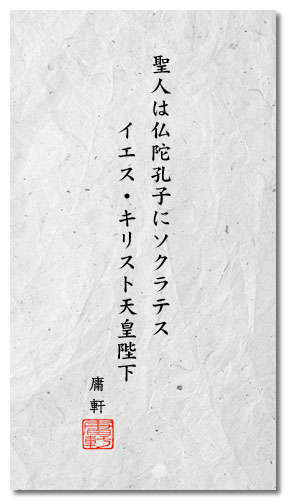 聖人は仏陀孔子にソクラテス
イエス・キリスト天皇陛下
庸軒